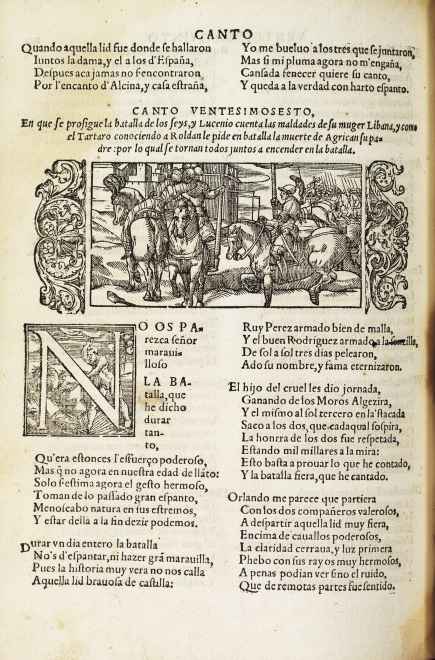 CANTO
Quando aquella lid fue donde se hallaron
Iuntos la dama, y el a los d'España,
Despues aca jamas no s'encontraron
Por l'encanto d'Alcina, y casa estraña,
Yo me bueluo a los tres que se juntaron,
Mas si mi pluma agora no m'engaña,
Cansada fenecer quiere su canto,
Y queda a la verdad con harto espanto.
CANTO VENTESIMOSESTO,
En que se prosigue la batalla de los seys, y Lucenio cuenta las maldades de su muger Libana, y como
el Tartaro conociendo a Roldan le pide en batalla la muerte de Agrican su pa-
dre: por lo qual se tornan todos juntos a encender en la batalla.
NO OS PA-
rezca señor
maraui-
lloso
LA BA-
talla, que
he dicho
durar
tan-
to,
Qu'era estonces l'esfuerço poderoso,
Mas q̃ no agora en nuestra edad de llãto:
Solo s'estima agora el gesto hermoso,
Toman de lo passado gran espanto,
Menoscabo natura en sus estremos,
Y estar della a la fin dezir podemos.
Durar vn dia entero la batalla
No's d'espantar, ni hazer grã marauilla,
Pues la historia muy vera no nos calla
Aquella lid brauosa de castilla:
Ruy Perez armado bien de malla,
Y el buen Rodriguez armado a la
De sol a sol tres dias pelearon,
Ado su nombre, y fama eternizaron.
El hijo del cruel les dio jornada,
Ganando de los Moros Algezira,
Y el mismo al sol tercero en la'stacada
Saco a los dos, que cada qual sospira,
La honrra de los dos fue respetada,
Estando mil millares a la mira:
Esto basta a prouar lo que he contado,
Y la batalla fiera, que he cantado.
Orlando me parece que partiera
Con los dos compañeros valerosos,
A despartir aquella lid muy fiera,
Encima de cauallos poderosos,
La claridad cerraua, y luz primera
Phebo con sus rayos muy hermosos,
A penas podian ver sino el ruido,
Que de remotas partes fue sentido.